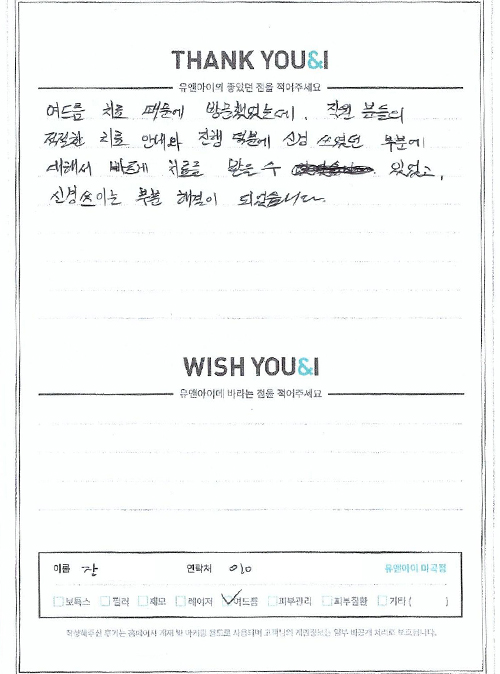 THANK YOU&I
유앤아이의 좋았던 점을 적어주세요
여드름 치료 때문에 방문했었는데, 직원 분들의
적절한 치료 안내와 진행 덕분에 신경 쓰였던 부분에
대해서 빠르게 치료를 받을 수 있었고,
신경쓰이는 부분 해결이 되었습니다.
WISH YOU&I
유앤아이에 바라는 점을 적어주세요
이름 연락처 010 유앤아이 마곡점
보톡스 필러 제모 레이저 여드름 피부관리 피부질환 기타 ( )
작성해주신 후기는 홈페이지 게재 및 마케팅 용도로 사용되며 고객님의 개인정보는 일부 비공개 처리로 보호됩니다.